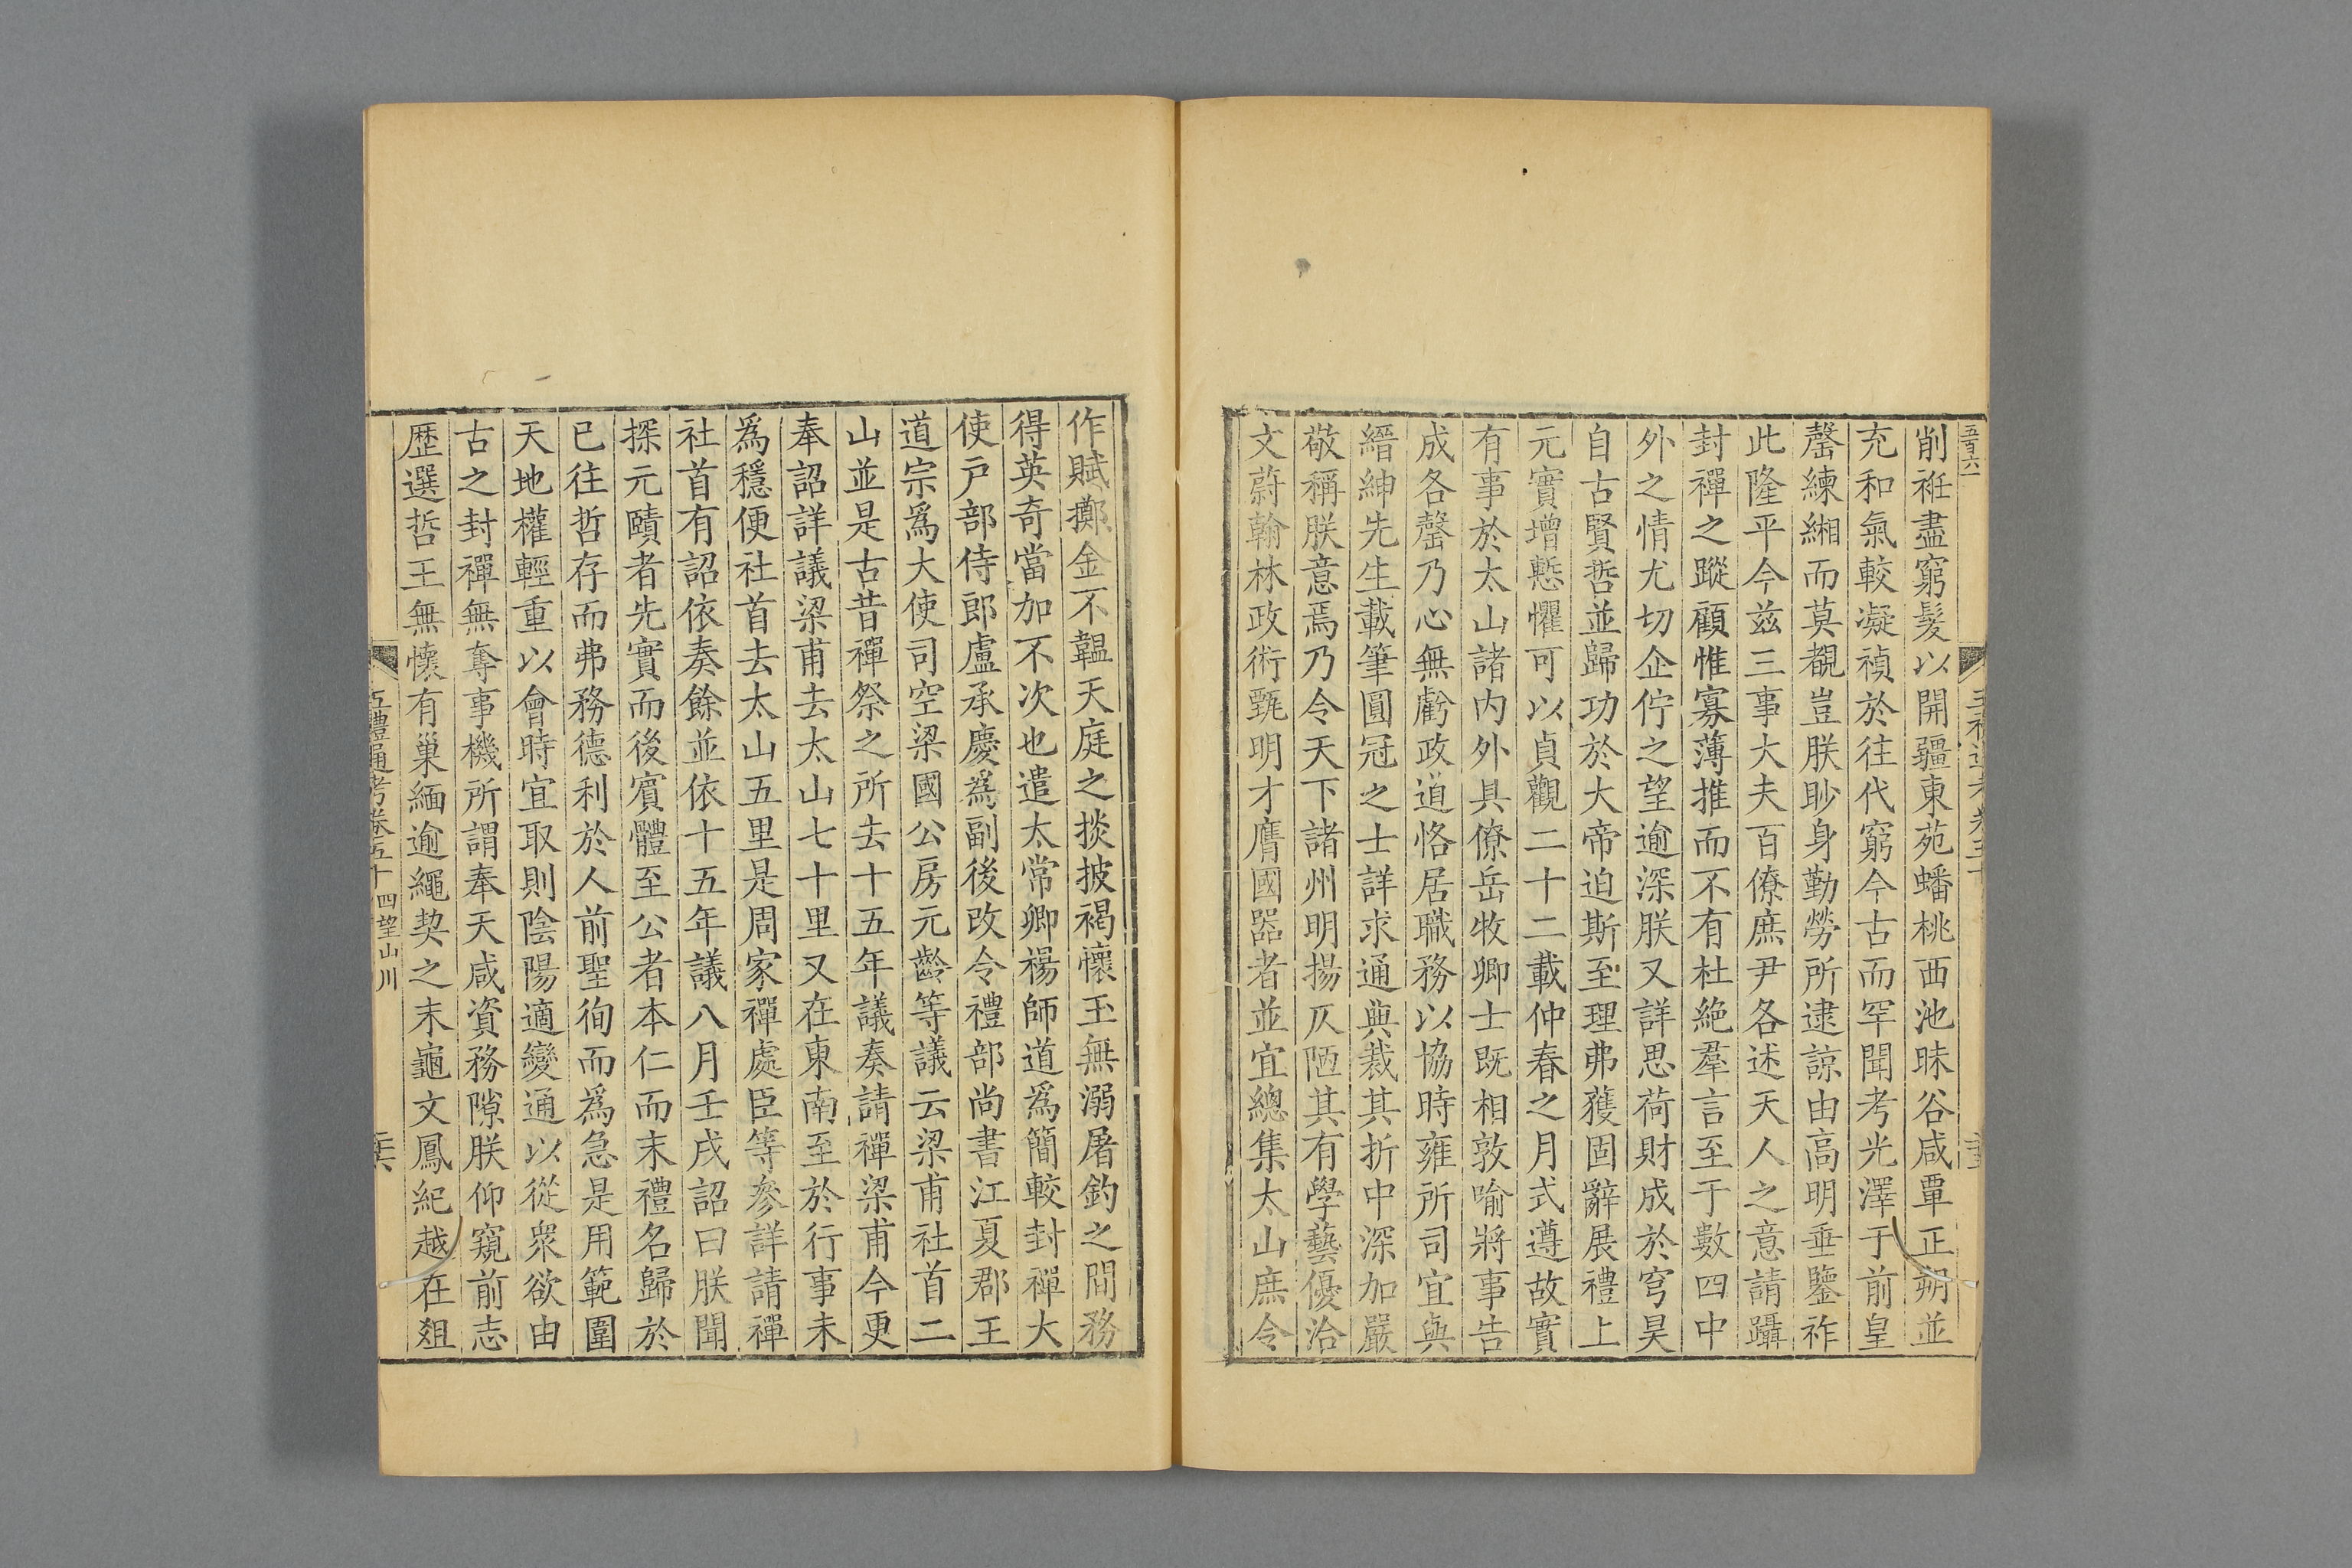 五百六一
削袵盡窮髮以開疆東苑蟠桃西池昧谷咸覃正朔並
充和氣較凝禎於往代窮今古而罕聞考光澤于前皇
罄練緗而莫覩豈朕眇身勤勞所逮諒由高明垂鑒祚
此隆平今兹三事大夫百僚庶尹各述天人之意請躡
封禪之蹤顧惟寡薄推而不有杜絶羣言至于數四中
外之情尤切企佇之望逾深朕又詳思荷財成於穹昊
自古賢哲並歸功於大帝迫斯至理弗獲固辭展禮上
元實增慙懼可以貞觀二十二載仲春之月式遵故實
有事於太山諸内外具僚岳牧卿士既相敦喻將事告
成各罄乃心無虧政道恪居職務以協時雍所司宜與
縉紳先生載筆圓冠之士詳求通典裁其折中深加嚴
敬稱朕意焉乃令天下諸州明揚仄陋其有學藝優洽
文蔚翰林政術甄明才膺國器者並宜總集太山庶令
作賦擲金不韞天庭之掞披褐懷玉無溺屠釣之間務
得英奇當加不次也遣太常卿楊師道爲簡較封禪大
使戶部侍郎盧承慶爲副後改令禮部尚書江夏郡王
道宗爲大使司空梁國公房元齡等議云梁甫社首二
山並是古昔禪祭之所去十五年議奏請禪梁甫今更
奉詔詳議梁甫去太山七十里又在東南至於行事未
爲穩便社首去太山五里是周家禪處臣等參詳請禪
社首有詔依奏餘並依十五年議八月壬戌詔曰朕聞
探元賾者先實而後賓體至公者本仁而末禮名歸於
已往哲存而弗務德利於人前聖徇而爲急是用範圍
天地權輕重以會時宜取則陰陽適變通以從衆欲由
古之封禪無奪事機所謂奉天咸資務隙朕仰窺前志
歷選哲王無懷有巢緬逾繩契之末龜文鳳紀越在俎
五禮通考卷五十 四望山川